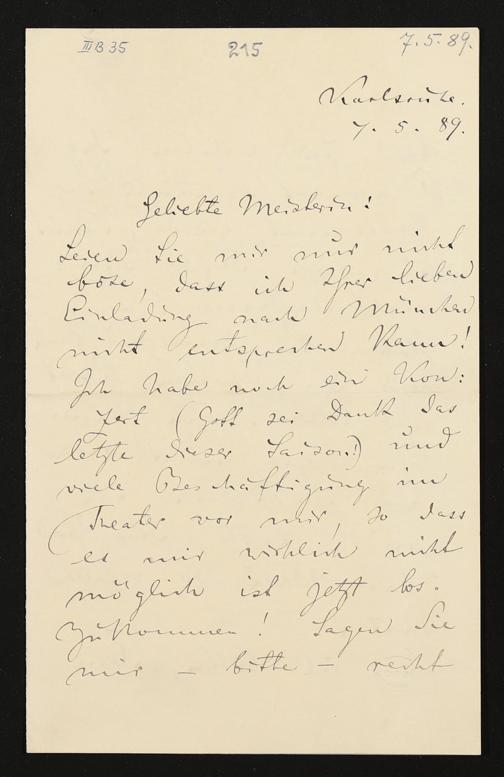 III B 35 215 7.5.89.
Karlsruhe.
7. 5. 89.
Geliebte Meisterin!
Seien Sie mir nur nicht
böse, dass ich Ihrer lieben
Einladung nach München
nicht entsprechen kann!
Ich habe noch ein Kon:
zert (Gott sei Dank das
letzte dieser Saison!) und
viele Beschäftigung im
Theater vor mir, so dass
es mir wirklich nicht
möglich ist jetzt los.
zukommen! Sagen Sie
mir – bitte – recht